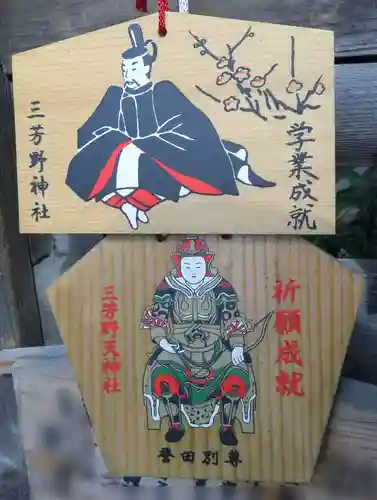 学業成就
三芳野神社
祈願成就
三芳野天神社
譽田別尊